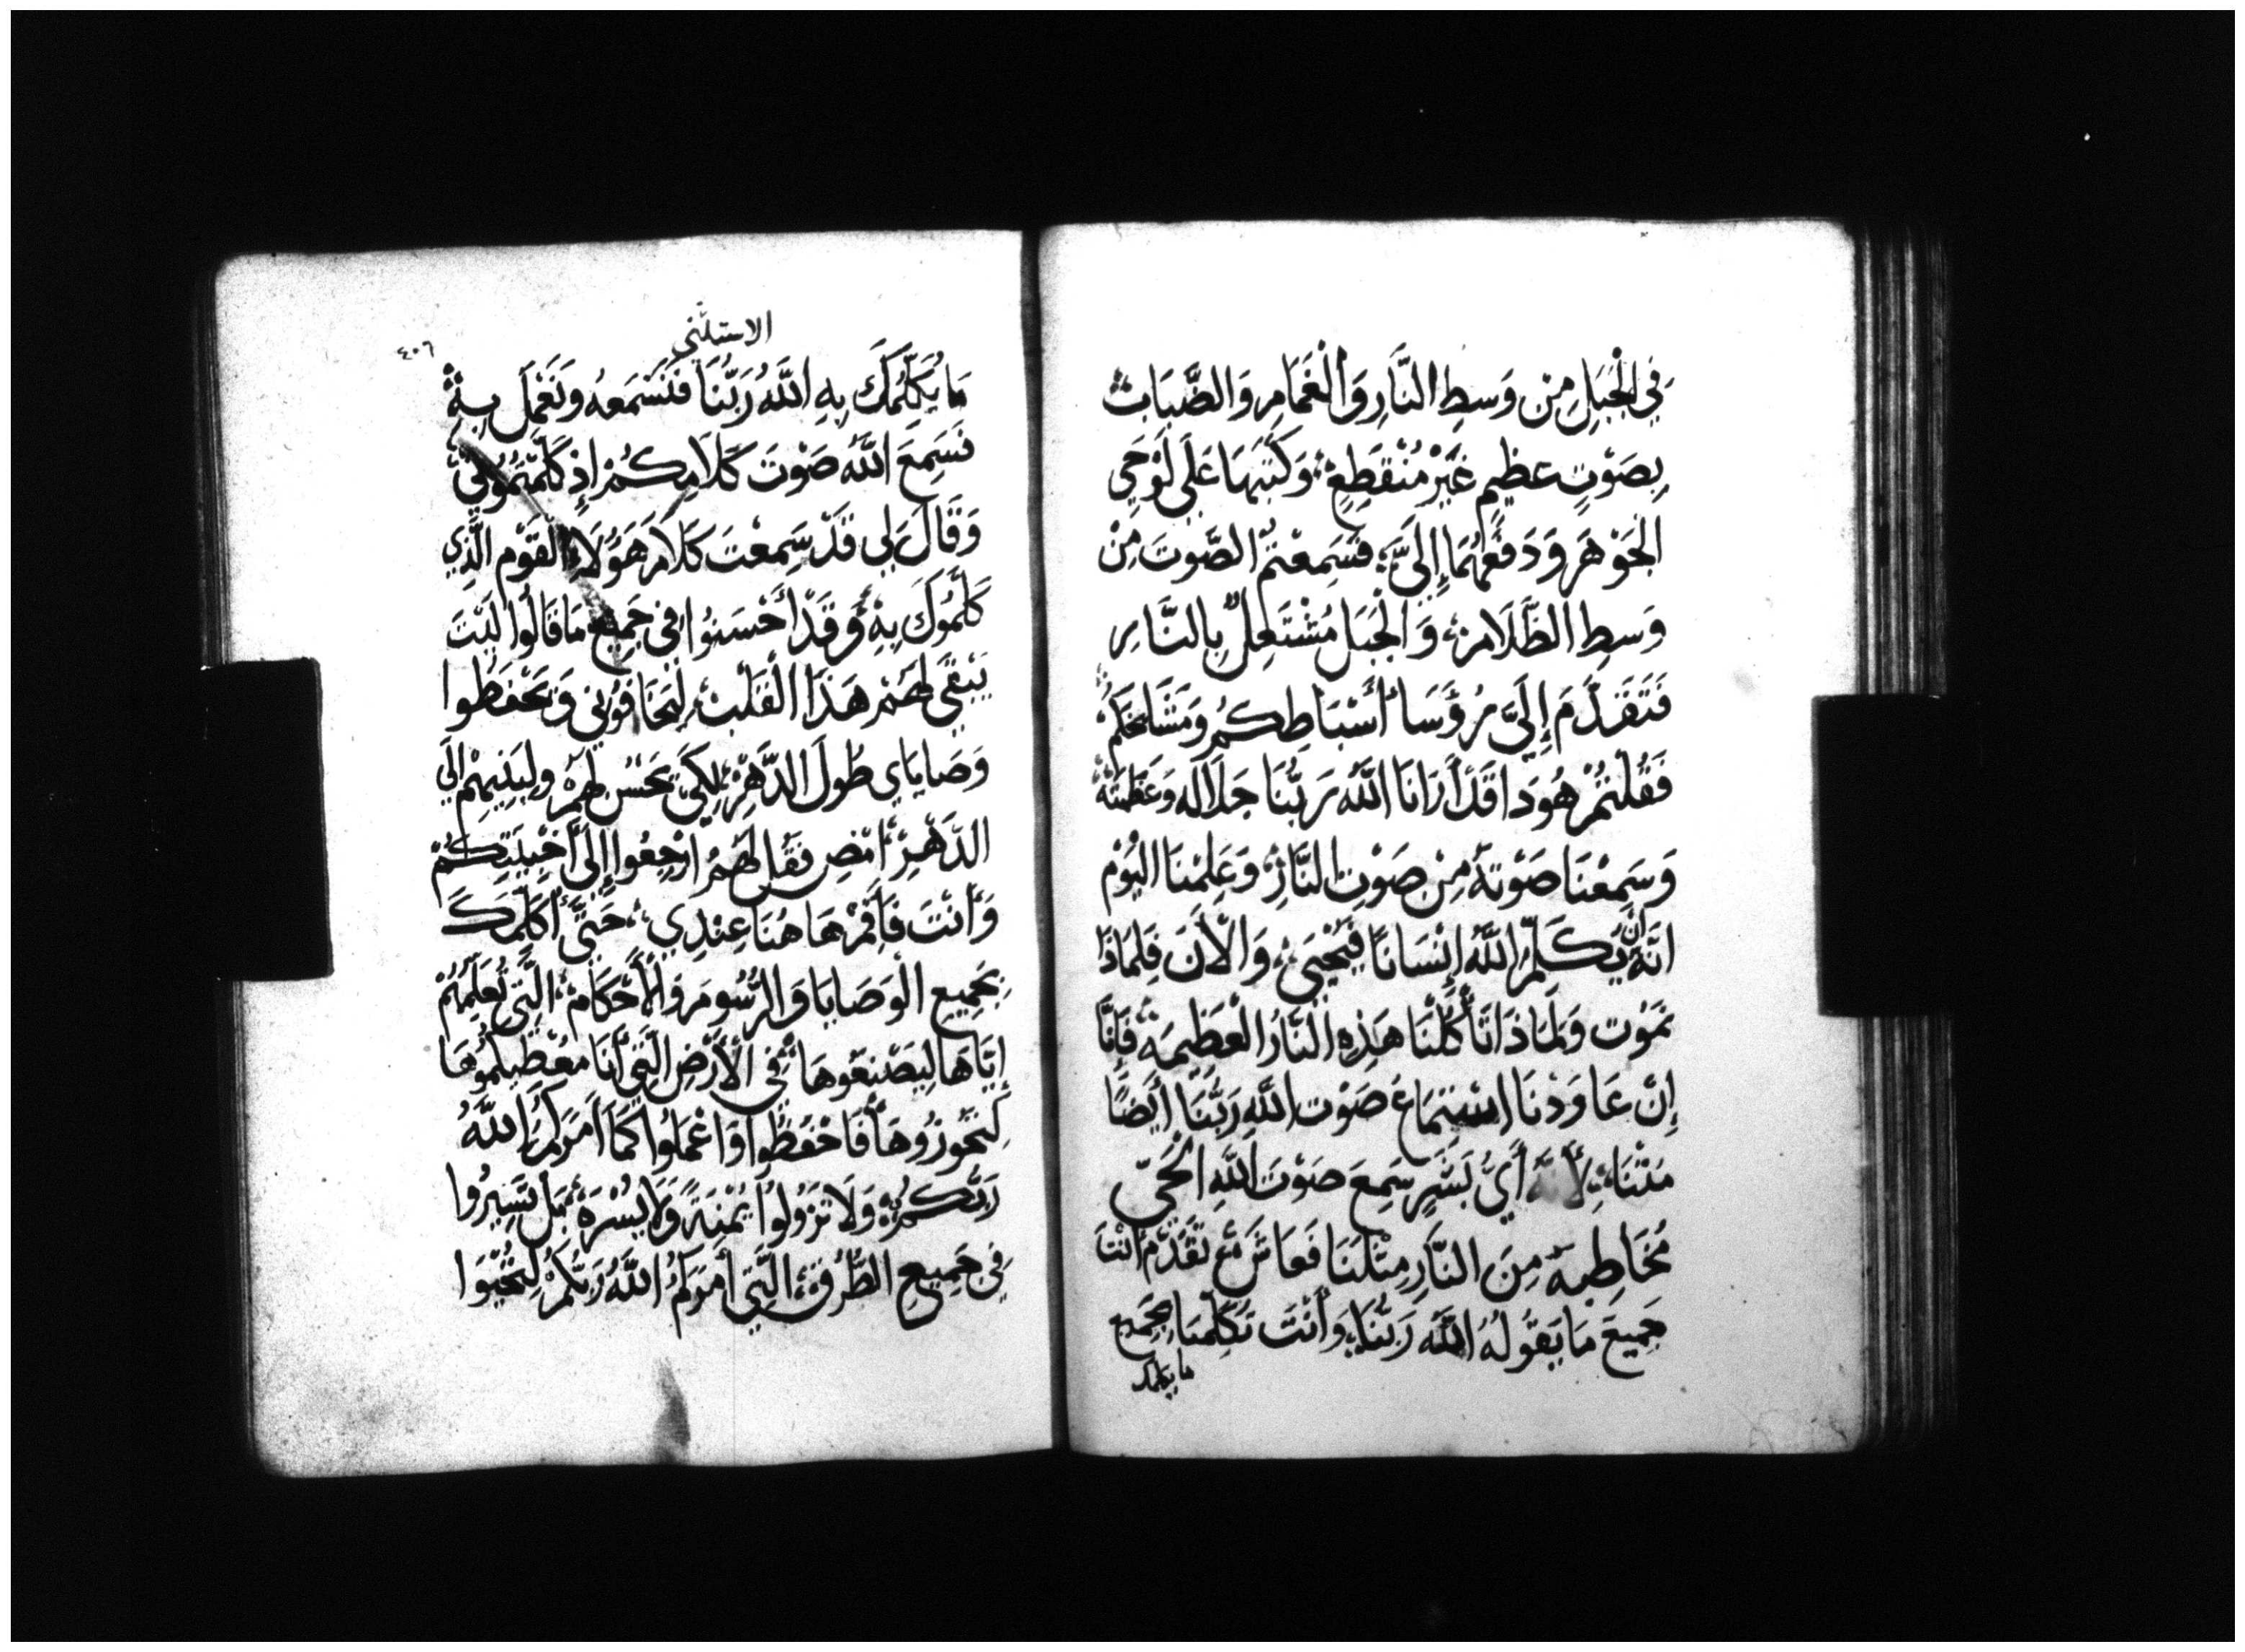 فِي الْجَبَلِ مِنْ وَسطِ النَّارِ وَالْغَمَامِ وَالضَّبَابِ
بِصَوْتٍ عظِيمٍ غَيْرْ مُنْقَطِعٍ وَكَتَبَهَا عَلَى لَوْحَي
الجَوْهَر وَدَفَعَهُمَا إِلَيَّ فَسَمِعْتُم الصَّوتَ مِنْ
وَسطِ الظَّلَامِ وَالْجَبَل مُشْتَعِلٌ بِالنَّارِ
فَتَقَدَّمَ إِلَيَّ رُؤَسَا أَسْبَاطِكُم وَمَشَايخكُمْ
فَقُلْتُمْ هُودَا قَدْ أَرَانَا اللَّهُ رَبُّنَا جَلَالَه وَعَظَمَتَهُ
وَسَمِعْنَا صَوْتَهُ مِنْ صَوْتِ النَّارِ وَعَلِمْنَا اليُوْم
انَّهُ ان يُكَلِّمُ اللَّهُ إِنْسَانًا فَيُحْيَى وَالْأَنَ فَلِمَاذَا
نَمَوْت وَلِمَاذَا تَأْكُلُنَا هَذِهِ النَّارُ الْعَظِيمَة فَإِنَّا
إِنْ عَاوَدْنَا اسْتِمَاعَ صَوْت اللَّهِ رَبُّنَا أَيْضًا
مُتْنَا لِأَنَّهُ أَيُّ بَشَرٍ سَمِعَ صَوْتَ اللَّهِ الْحَيّ
مُخَاطِبهُ مِنَ النَّارِ مِثْلَنَا فَعَاشَ تَقَدَّمْ أَنْتَ
جَمِيعَ مَا يَقُولُهُ اللَّهُ رَبُّنَا وَأَنْتَ تُكَلِّمُنَا بِجَمِيعِ
ما يكلمك
الاستثني
٤٠٦
مَا يُكَلِّمُكَ بِهِ اللَّهُ رَبُّنَا فَنَسْمَعهُ وَنَعْمَل بِهِ
فَسَمِعَ اللَّهُ صَوْتَ كَلَامِكُمْ إِذْ كَلَّمْتُمُونِي
وَقَالَ لِي قَدْ سَمِعْتَ كَلَامَ هَؤُلَاءِ القَوْم الَّذِي
كَلَّمُوكَ بِهِ وَقَدْ أَحْسَنُوا فِي جَمِيعِ مَا قَالُوا لَيْتَ
يَبْقَى لَهُمْ هَذَا الْقَلْبُ لِيَخَافُونِي وَيَحْفَظُوا
وَصَايَاي طُولَ الدَّهْرِ لِكَيْ يَحْسُن لَهُمْ وَلِبَنِيهِمْ الَى
الدَّهْرِ امْضِ فَقُل لَهُمُ ارْجِعُوا إِلَى أَخْبِيَتِكُمْ
وَأَنْتَ فَأَقِمْ هَاهُنَا عِنْدِي حَتَّى أُكَلِّمَكَ
بِجَمِيعِ الْوَصَايَا وَالرُّسُومِ وَالْأَحْكَامِ الَّتِي تُعَلِّمُهُمْ
إِيَّاهَا لِيَصْنَعُوهَا فِي الْأَرْضِ الَّتِي أَنَا مُعْطِيكُمُوهَا
لِتَحُوزُوهَا فَاحْفَظُوا وَاعْمَلُوا كَمَا أَمَرَكُمُ اللَّهُ
رَبُّكُمْ وَلَا تَزُولُوا يُمْنَةً وَلَا يُسْرَةً بَلْ تَسِيرُوا
فِي جَمِيعِ الطُّرُقِ الَّتِي أَمَرَكُمُ اللَّهُ رَبُّكُمْ لِتُحْيَوا